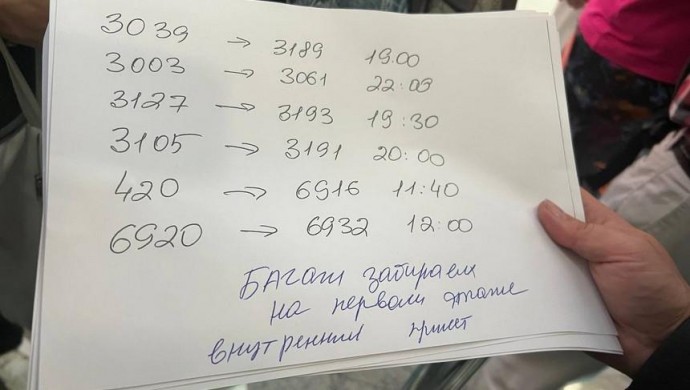 3039 → 3189 19.00
3003 → 3061 22:09
3127 → 3193 19:30
3105 → 3191 20:00
420 → 6916 11:40
6920 → 6932 12:00
БАГАЖ забираем
на первом этаже
внутренний прилет